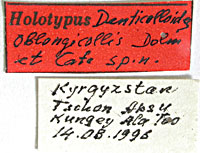 Holotypus Denticolloides
oblongicollis Dolin
et Cate sp.n.
Kyrgyzstan
Tschon Aksu
Kungey Ala Too
14.08.1996